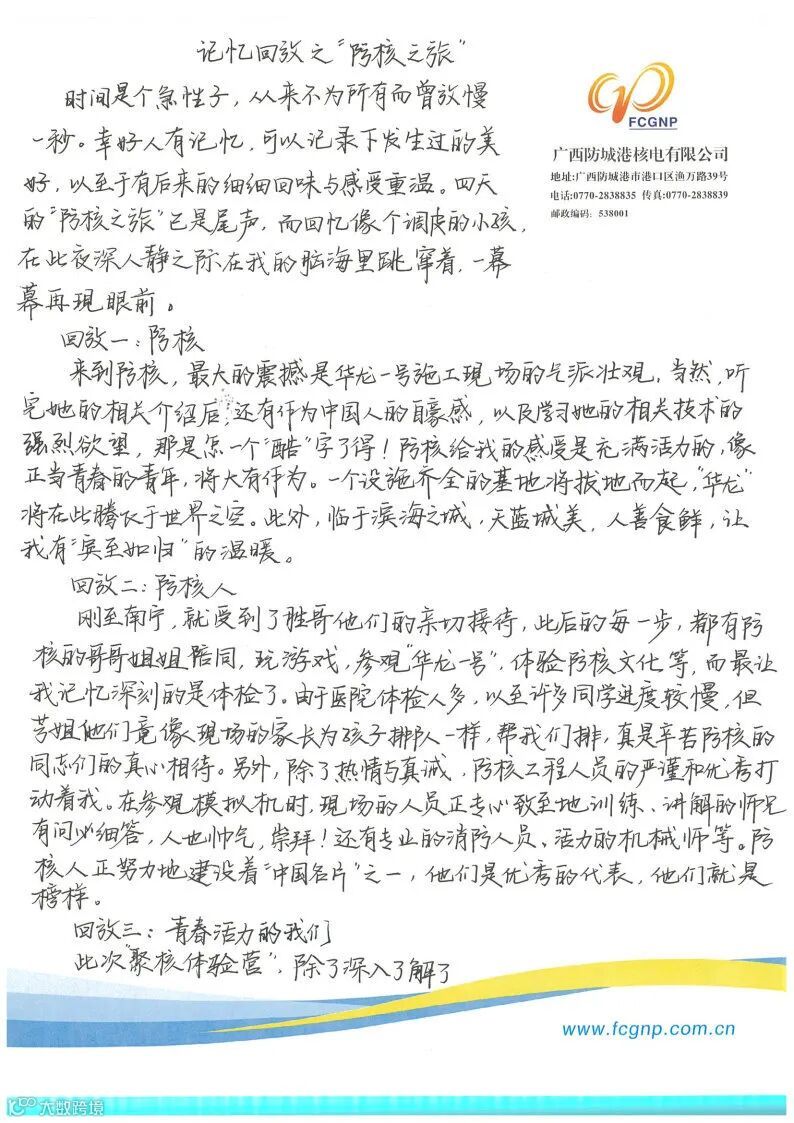 记忆回放之"防核之旅"
FCGNP
广西防城港核电有限公司
地址:广西防城港市港口区渔万路39号
电话:0770-2838835 传真:0770-2838839
邮政编码: 538001
时间是个急性子，从来不为所有而曾放慢
一秒。幸好人有记忆，可以记录下发生过的美
好，以至于有后来的细细回味与感受重温。四天
的"防核之旅"已是尾声，而回忆像个调皮的小孩，
在此夜深人静之际在我的脑海里跳窜着，一幕
幕再现眼前。
回放一：防核
来到防核，最大的震撼是华龙一号施工现场的气派壮观，当然，听
完她的相关介绍后，还有作为中国人的自豪感，以及学习她的相关技术的
强烈欲望，那是怎一个"酷"字了得！防核给我的感受是充满活力的，像
正当青春的青年，将大有作为。一个设施齐全的基地将拔地而起，"华龙"
将在此腾飞于世界之空。此外，临于滨海之城，天蓝城美，人善食鲜，让
我有"宾至如归"的温暖。
回放二：防核人
刚至南宁，就受到了胜哥他们的亲切接待，此后的每一步，都有防
核的哥哥姐姐陪同，玩游戏，参观"华龙一号"，体验防核文化等，而最让
我记忆深刻的是体检了。由于医院体检人多，以至许多同学进度较慢，但
姐他们竟像现场的家长为孩子排队一样，帮我们排，真是辛苦防核的
同志们的真心相待。另外，除了热情与真诚，防核工程人员的严谨和优秀打
动着我。在参观模拟机时，现场的人员正专心致至地训练、讲解的师兄
有问必细答，人也帅气，崇拜！还有专业的消防人员、活力的机械师等。防
核人正努力地建设着"中国名片"之一，他们是优秀的代表，他们就是
榜样。
回放三：青春活力的我们
此次"聚核体验营"，除了深入了解了
www.fcgnp.com.cn
大数跨境